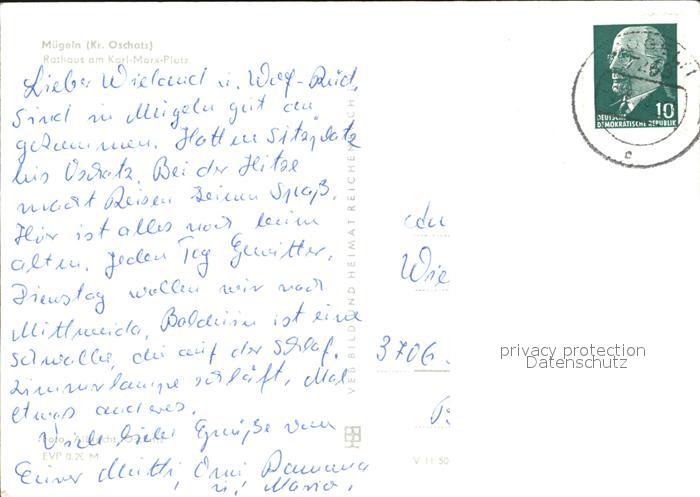 Mügeln (Kr. Oschatz)
Rathaus am Karl-Marx-Platz
Lieber Wieland u.
Sind in Mügeln gut an
gekommen. Hatten Sitzplatz
bis Oschatz. Bei der Hitze
macht Reisen keinen Spaß.
Hier ist alles noch beim
alten. Jeden Tag Gewitter.
Dienstag wollen wir nach
Mittweida. Balduin ist eine
Schwalbe, die auf der Schlaf.
zimmerlampe schläft. Mal
etwas anderes.
Viele liebe Grüße von
Eurer Mutti, Omi Ramona
u. Maria.
EVP 0.20 M
VEB BILD UND HEIMAT REICHENBACH
V 11 50
DEUTSCHE
DEMOKRATISCHE REPUBLIK
10
c
An
Wie
3706
privacy protection
Datenschutz